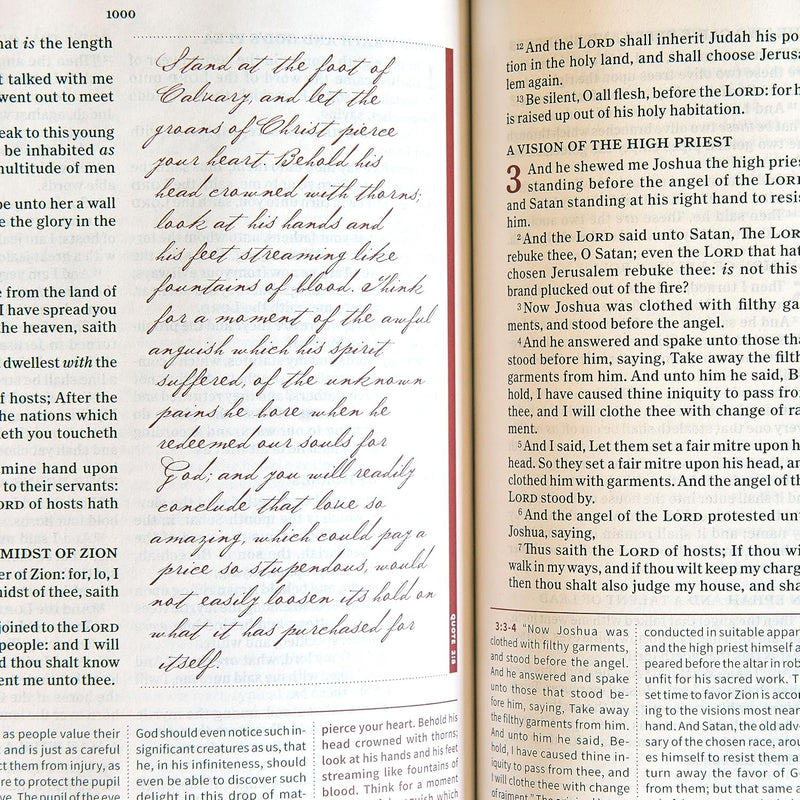 1000
hat is the length
t talked with me
went out to meet
eak to this young
be inhabited as
multitude of men
be unto her a wall
e the glory in the
e from the land of
I have spread you
he heaven, saith
dwellest with the
f hosts; After the
he nations which
eth you toucheth
mine hand upon
to their servants:
ORD of hosts hath
MIDST OF ZION
er of Zion: for, lo, I
midst of thee, saith
joined to the LORD
people: and I will
d thou shalt know
ent me unto thee.
Stand at the foot of
Calvary, and let the
groans of Christ pierce
your heart. Behold his
head crowned with thorns;
look at his hands and
his feet streaming like
fountains of blood. Think
for a moment of the awful
anguish which his spirit
suffered, of the unknown
pains he bore when he
redeemed our souls for
God; and you will readily
conclude that love so
amazing, which could pay a
price so stupendous, would
not easily loosen its hold on
what it has purchased for
itself.
QUOTE 2:8
as people value their
and is just as careful
ct them from injury, as
re to protect the pupil
ve. The pupil of the eye
God should even notice such in-
significant creatures as us, that
he, in his infiniteness, should
even be able to discover such
delight in this drop of mat-
pierce your heart. Behold his
head crowned with thorns;
look at his hands and his feet
streaming like fountains of
blood. Think for a moment
of the awful anguish which
12 And the LORD shall inherit Judah his po
tion in the holy land, and shall choose Jerusa
lem again.
13 Be silent, O all flesh, before the LORD: for h
is raised up out of his holy habitation.
A VISION OF THE HIGH PRIEST
3 And he shewed me Joshua the high prie
standing before the angel of the LORD
and Satan standing at his right hand to resis
him.
2 And the LORD said unto Satan, The LOR
rebuke thee, O Satan; even the LORD that hat
chosen Jerusalem rebuke thee: is not this
brand plucked out of the fire?
3 Now Joshua was clothed with filthy ga
ments, and stood before the angel.
4 And he answered and spake unto those tha
stood before him, saying, Take away the filth
garments from him. And unto him he said, B
hold, I have caused thine iniquity to pass fro
thee, and I will clothe thee with change of ra
ment.
5 And I said, Let them set a fair mitre upon h
head. So they set a fair mitre upon his head, an
clothed him with garments. And the angel of th
LORD stood by.
6 And the angel of the LORD protested unt
Joshua, saying,
7 Thus saith the LORD of hosts; If thou wi
walk in my ways, and if thou wilt keep my charg
then thou shalt also judge my house, and sha
3:3-4 "Now Joshua was
clothed with filthy garments,
and stood before the angel.
And he answered and spake
unto those that stood be-
fore him, saying, Take away
the filthy garments from him.
And unto him he said, Be-
hold, I have caused thine in-
iquity to pass from thee, and
I will clothe thee with change
of raiment."
conducted in suitable appar
and the high priest himself a
peared before the altar in rob
unfit for his sacred work. T
set time to favor Zion is accor
ing to the visions most near
hand. And Satan, the old adve
sary of the chosen race, arou
es himself to resist them an
turn away the favor of Go
from them; but that same a